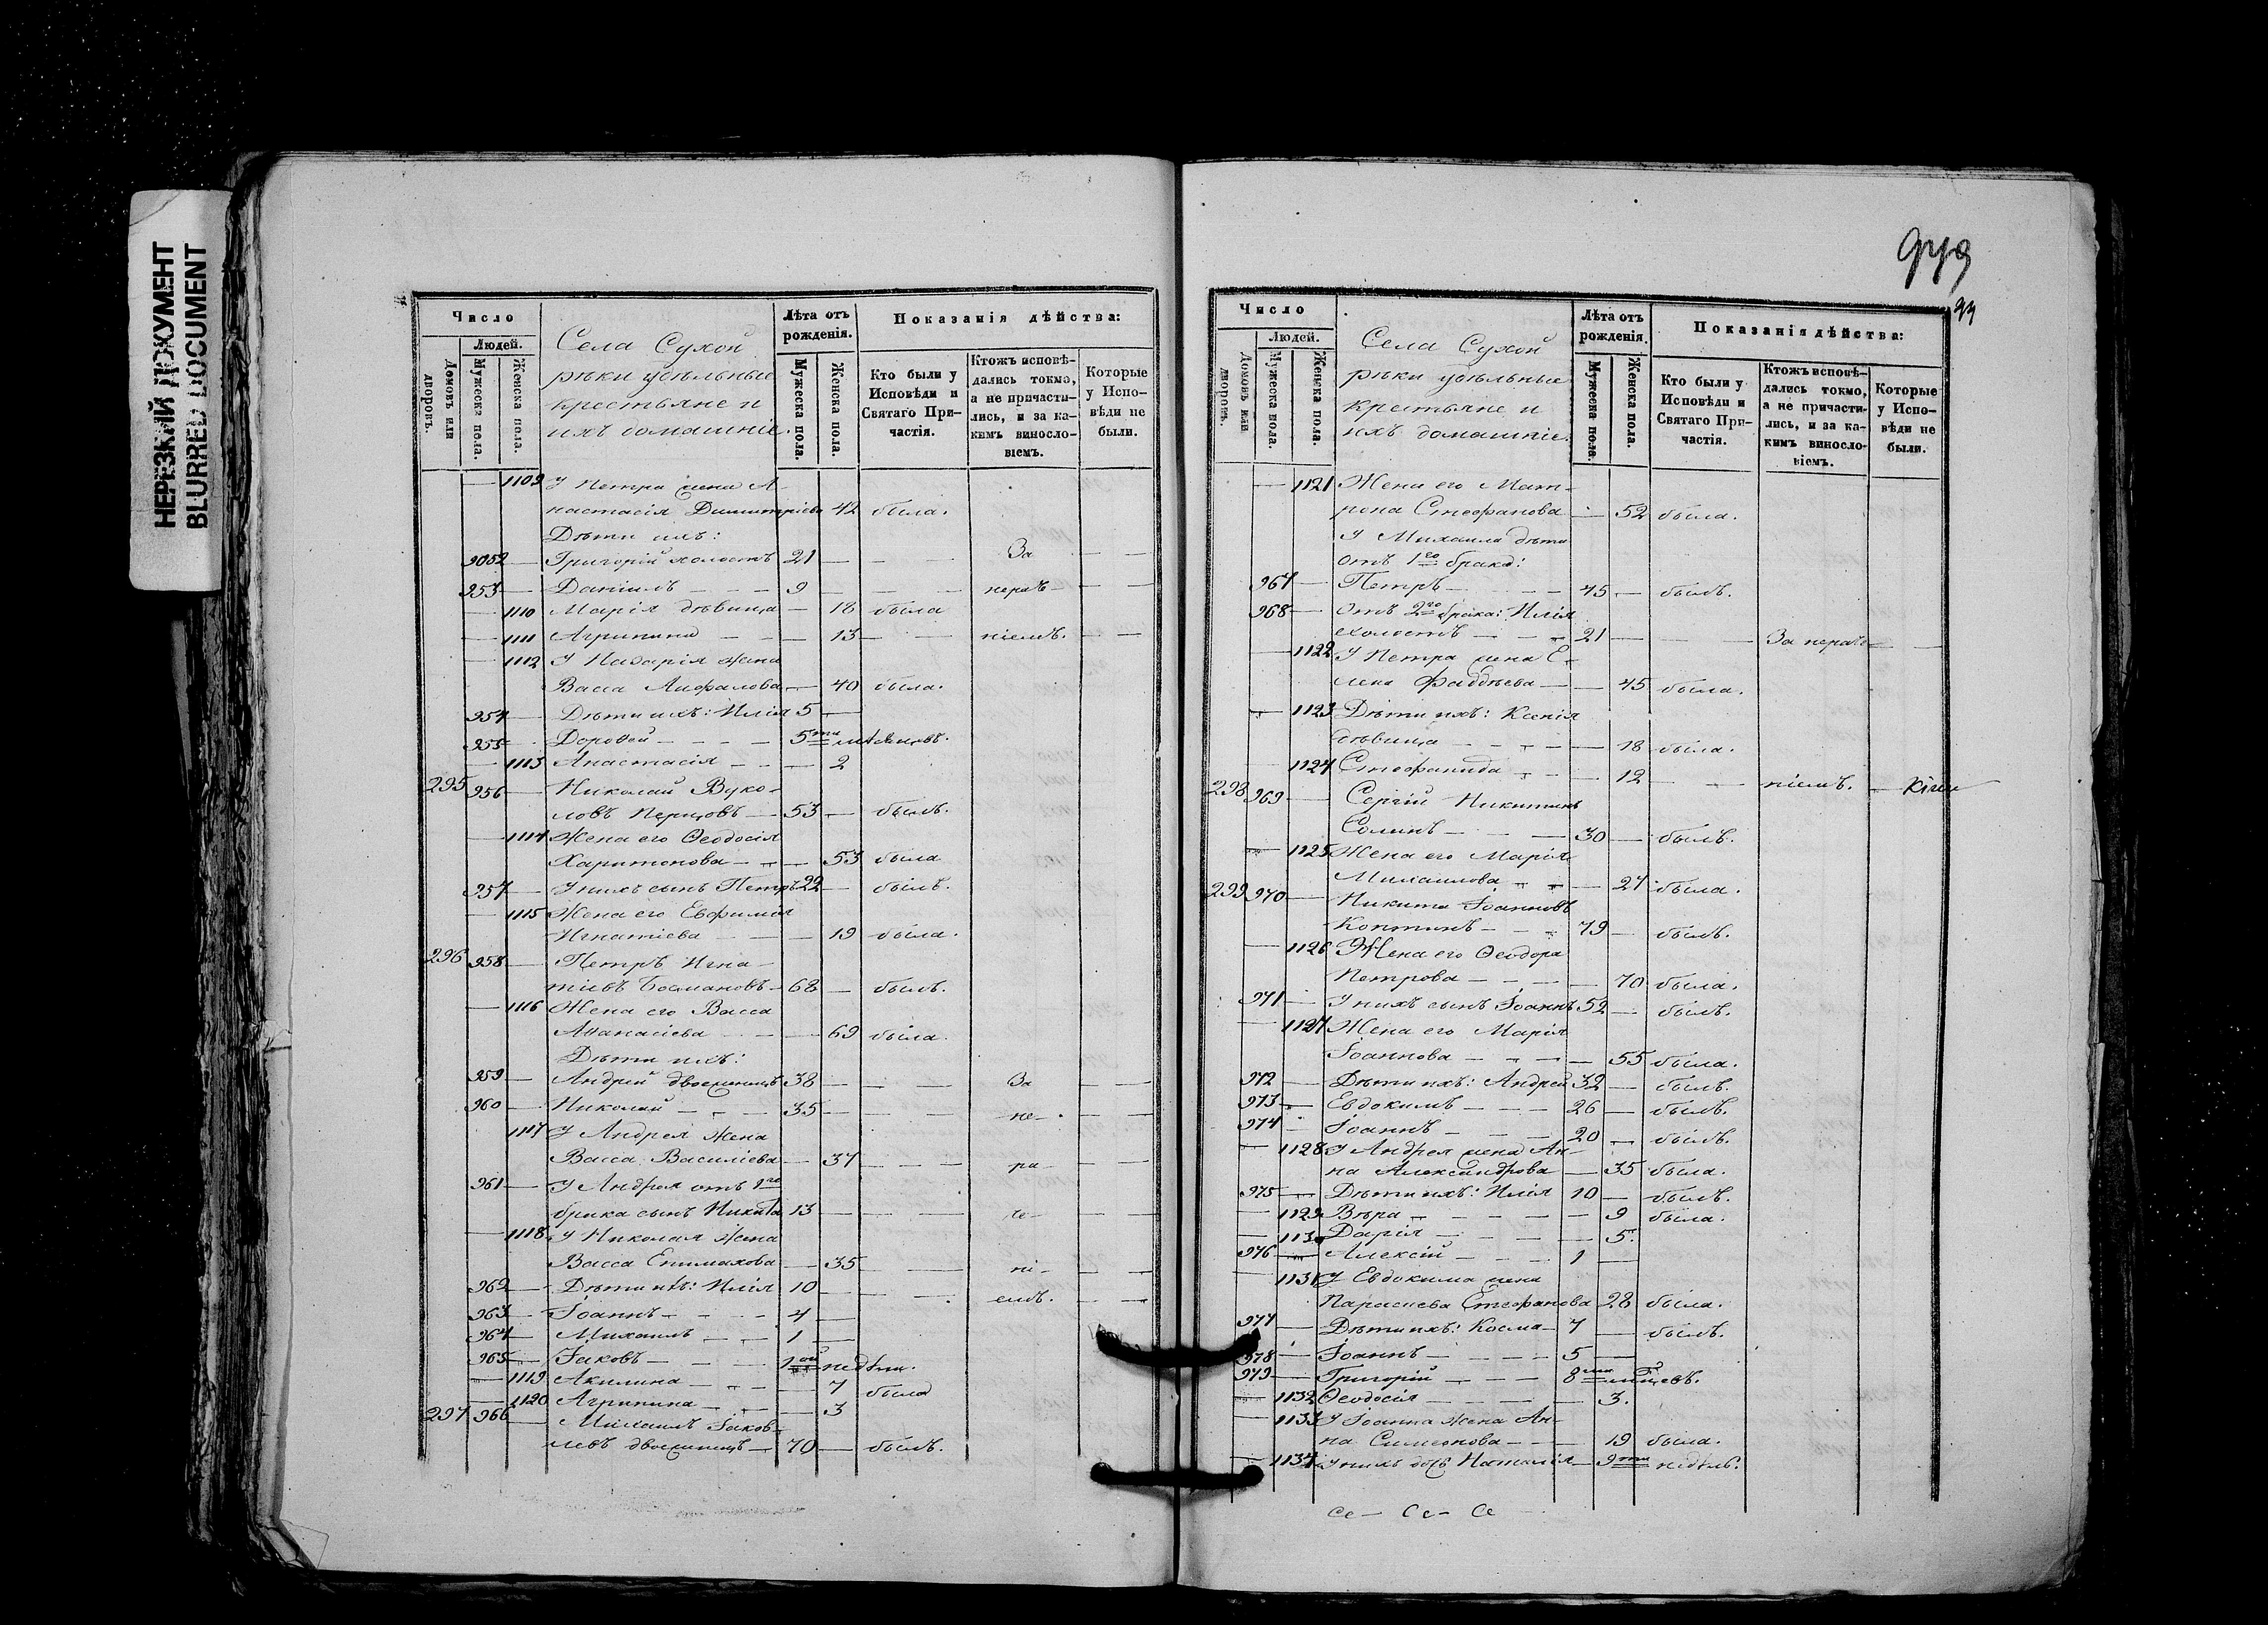 НЕРЕЗКИЙ ДОКУМЕНТ
BLURRED DOCUMENT
Число
Людей.
Домовъ или дворовъ.
Мужеска пола.
Женска пола.
Села Сухой
рѣки удѣльные
крестьяне и
ихъ домашніе.
Лѣта отъ рожденія.
Мужеска пола.
Женска пола.
Показанія дѣйства:
Кто были у Исповѣди и Святаго Причастія.
Ктожъ исповѣдались токмо, а не причастились, и за какимъ винословіемъ.
Которые у Исповѣди не были.
1109 У Петра жена А-
настасія Димитріева 42 была.
Дѣти ихъ:
9052 Григорій холостъ 21 — За
953 Даніилъ 9 — нерадѣ-
1110 Марія дѣвица — 18 была
1111 Агрипина — 13 — ніемъ.
1112 У Назарія жена
Васса Анфалова — 40 была.
954 Дѣти ихъ: Илія 5 —
955 Дороѳей — 5ти мѣсяцовъ.
1113 Анастасія — 2
295 956 Николай Вуко-
ловъ Перцовъ — 53 — былъ.
1114 Жена его Ѳеодосія
Харитонова — 53 была
957 У нихъ сынъ Петръ 22 — былъ.
1115 Жена его Евфимія
Игнатіева — 19 была.
296 958 Петръ Игна-
тіевъ Босмановъ — 68 — былъ.
1116 Жена его Васса
Аѳанасіева — 69 была.
Дѣти ихъ:
959 Андрей двоеженецъ 38 — За
960 Николай — 35 — не-
1117 У Андрея жена
Васса Василіева — 37 — ра-
961 У Андрея отъ 1го
брака сынъ Никита 13 —
1118 У Николая жена
Васса Епимахова — 35 — ні-
962 Дѣти ихъ: Илія 10 — емъ.
963 Іоаннъ — 4 —
964 Михаилъ — 1 —
965 Іаковъ — 1ой недѣли.
1119 Акилина — 7 была
1120 Агрипина — 3
297 966 Михаилъ Іаков-
левъ двоеженецъ — 70 — былъ.
99
Число
Людей.
Домовъ или дворовъ.
Мужеска пола.
Женска пола.
Села Сухой
рѣки удѣльные
крестьяне и
ихъ домашніе.
Лѣта отъ рожденія.
Мужеска пола.
Женска пола.
Показанія дѣйства:
Кто были у Исповѣди и Святаго Причастія.
Ктожъ исповѣдались токмо, а не причастились, и за какимъ винословіемъ.
Которые у Исповѣди не были.
1121 Жена его Мат-
рона Стефанова — 52 была.
У Михаила дѣти
отъ 1го брака:
967 Петръ — 45 — былъ.
968 Отъ 2го брака: Илія
холостъ — 21 — За нерадѣ-
1122 У Петра жена Е-
лена Фаддѣева — 45 была.
1123 Дѣти ихъ: Ксенія
дѣвица — 18 была.
1124 Стефанида — 12 — ніемъ.
298 969 Сергій Никитинъ
Солинъ — 30 — былъ.
1125 Жена его Марія
Михаилова — 27 была.
299 970 Никита Іоанновъ
Коптинъ — 79 — былъ.
1126 Жена его Ѳеодора
Петрова — 70 была.
971 У нихъ сынъ Іоаннъ 52 — былъ.
1127 Жена его Марія
Іоаннова — 55 была.
972 Дѣти ихъ: Андрей 32 — былъ.
973 Евдокимъ — 26 — былъ.
974 Іоаннъ — 20 — былъ.
1128 У Андрея жена Ан-
на Александрова — 35 была.
975 Дѣти ихъ: Илія 10 — былъ.
1129 Вѣра — 9 была.
1130 Дарія — 5.
976 Алексій — 1 —
1131 У Евдокима жена
Парасцева Стефанова 28 была.
977 Дѣти ихъ: Косма — 7 — былъ.
978 Іоаннъ — 5 —
979 Григорій — 8ми мѣсяцевъ.
1132 Ѳеодосія — 3.
1133 У Іоанна жена Ан-
на Симеонова — 19 была.
1134 У нихъ дочь Наталія — 9ти недѣль.